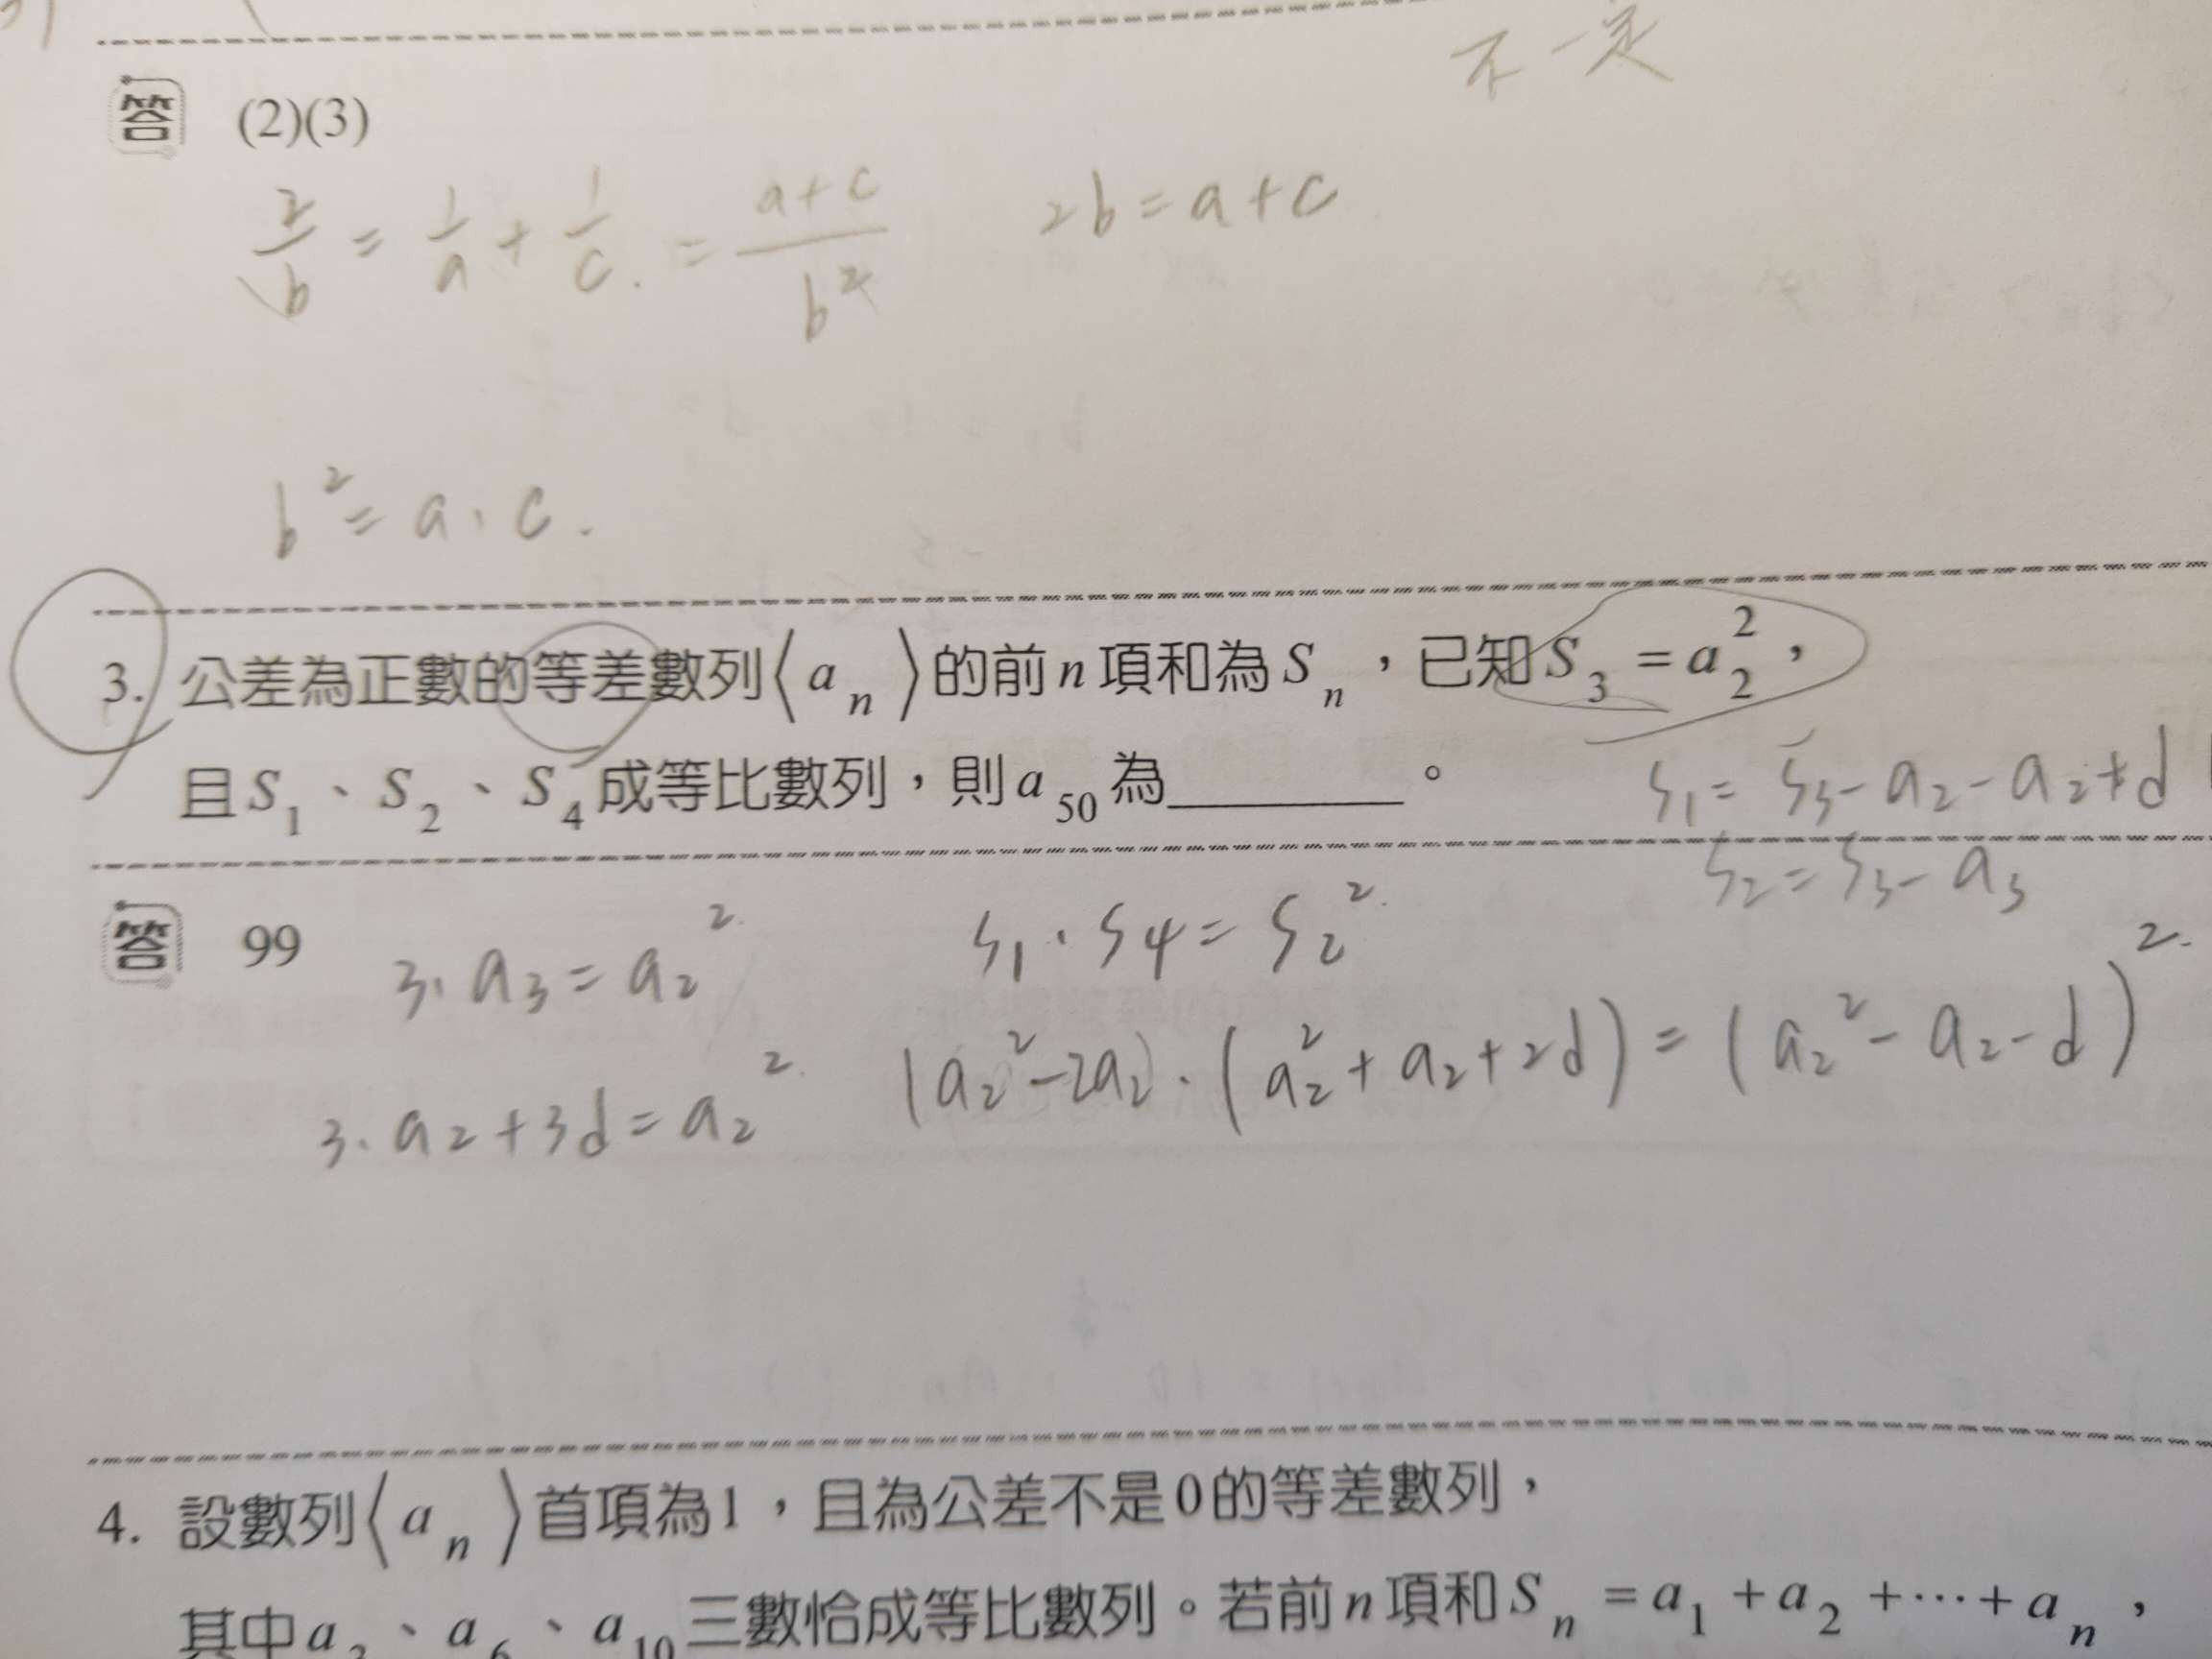 不一定
答 (2)(3)
2/b = 1/a + 1/c. = (a+c)/b² 2b = a+c
b² = a·c.
3. 公差為正數的等差數列⟨a_n⟩的前n項和為S_n，已知S_3 = a_2^2，
且S_1、S_2、S_4成等比數列，則a_50為________。
S_1 = S_3 - a_2 - a_2 + d
S_2 = S_3 - a_3
答 99
3·a_3 = a_2^2. S_1·S_4 = S_2^2.
3·a_2+3d = a_2^2. (a_2^2-2a_2)·(a_2^2+a_2+2d) = (a_2^2-a_2-d)^2.
4. 設數列⟨a_n⟩首項為1，且為公差不是0的等差數列，
其中a、a_6、a_10三數恰成等比數列。若前n項和S_n = a_1 + a_2 + ⋯ + a_n，